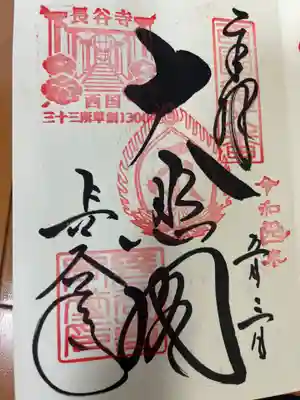 奉拝
令和元年
五月三日
大悲閣
長谷寺
長谷寺
西国
三十三所草創1300